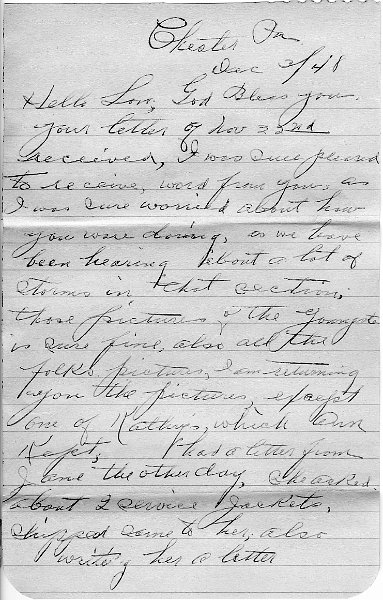 Chester Pa
Dec 3/48
Hello Son, God Bless you.
your letter of Nov 22nd
received, I was sure pleased
to receive, word from you, as
I was sure worried about how
you were doing, as we have
been hearing about a lot of
storms in that section,
those pictures, of the Youngster
is sure fine, also all the
folks, pictures, I am returning
you the pictures, except
one of Kathy's, which Ann
Kept, I had a letter from
Jane the other day, she asked
about 2 service Jackets,
shipped same to her, also
writing her a letter